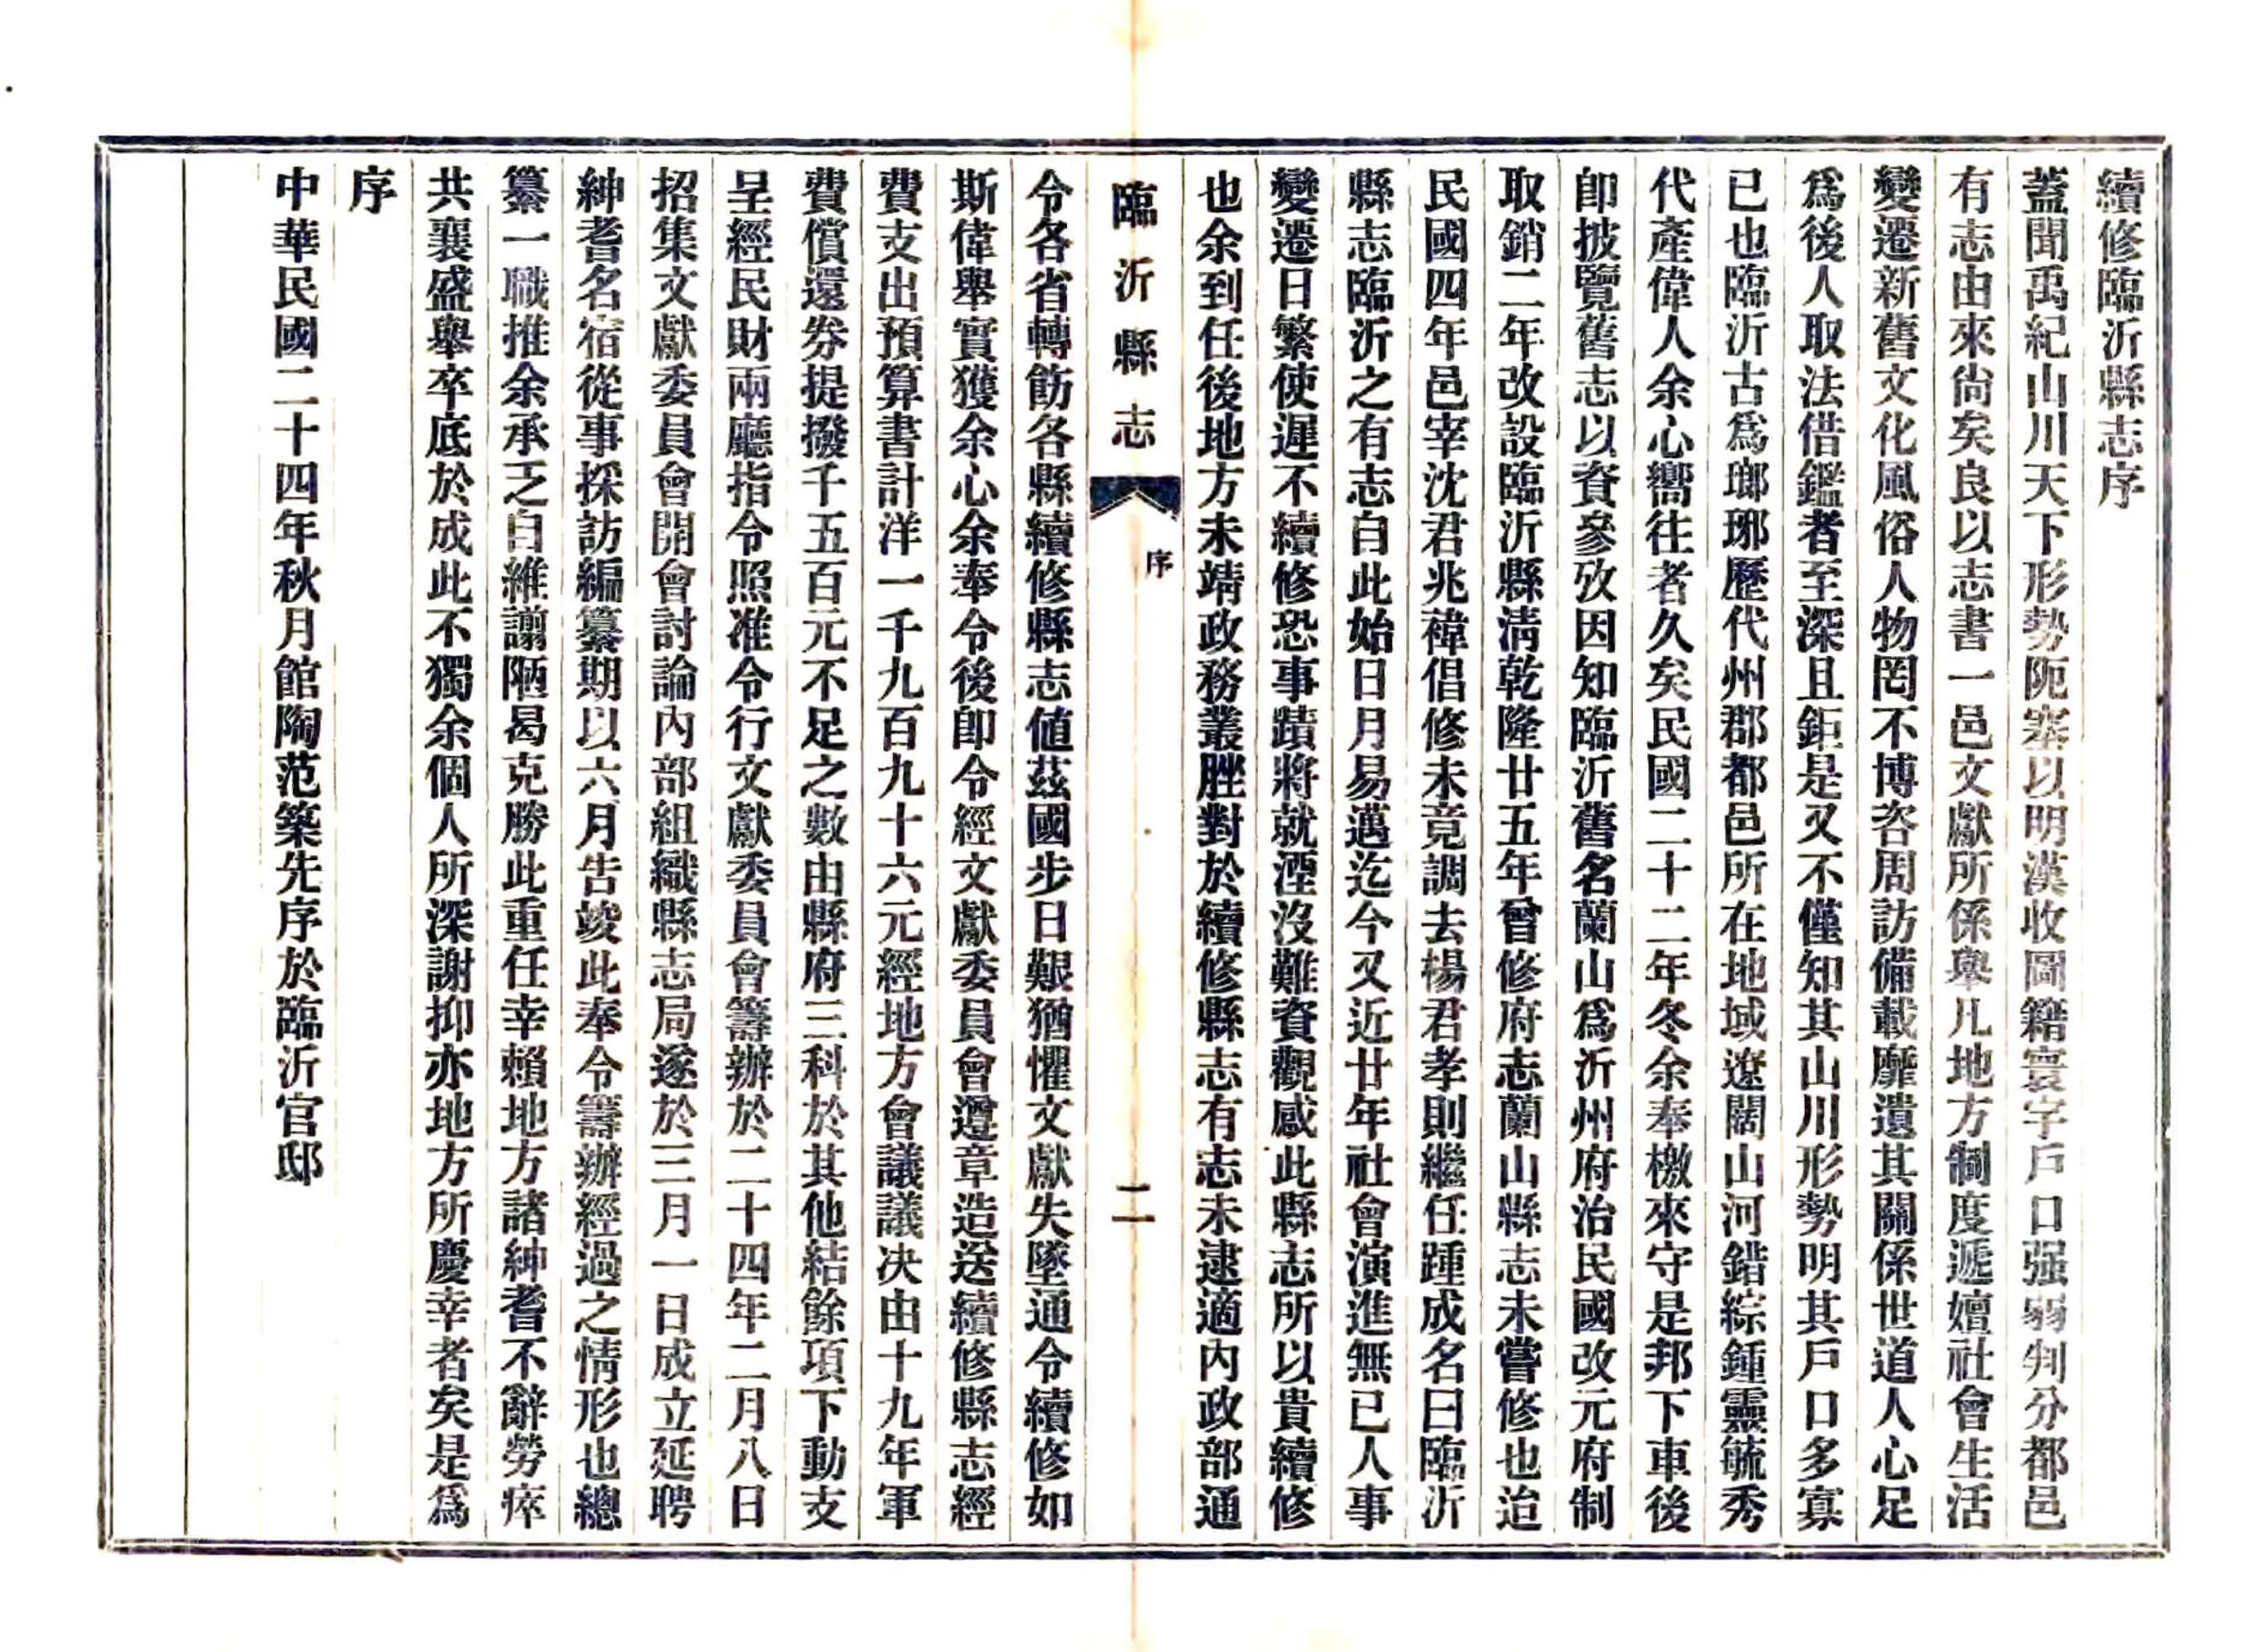 續修臨沂縣志序
蓋聞禹紀山川天下形勢阨塞以明漢收圖籍寰宇戶口强弱判分都邑
有志由來尙矣良以志書一邑文獻所係舉凡地方制度遞嬗社會生活
變遷新舊文化風俗人物罔不博咨周訪備載靡遺其關係世道人心足
爲後人取法借鑑者至深且鉅是又不僅知其山川形勢明其戶口多寡
已也臨沂古爲瑯琊歷代州郡都邑所在地域遼闊山河錯綜鍾靈毓秀
代產偉人余心嚮往者久矣民國二十二年冬余奉檄來守是邦下車後
卽披覽舊志以資參攷因知臨沂舊名蘭山爲沂州府治民國改元府制
取銷二年改設臨沂縣淸乾隆廿五年曾修府志蘭山縣志未嘗修也迨
民國四年邑宰沈君兆禕倡修未竟調去楊君孝則繼任踵成名曰臨沂
縣志臨沂之有志自此始日月易邁迄今又近廿年社會演進無已人事
變遷日繁使遲不續修恐事蹟將就湮沒難資觀感此縣志所以貴續修
也余到任後地方未靖政務叢脞對於續修縣志有志未逮適內政部通
臨沂縣志
序
二
令各省轉飭各縣續修縣志値茲國步日艱猶懼文獻失墜通令續修如
斯偉舉實獲余心余奉令後卽令經文獻委員會遵章造送續修縣志經
費支出預算書計洋一千九百九十六元經地方會議議决由十九年軍
費償還劵提撥千五百元不足之數由縣府三科於其他結餘項下動支
呈經民財兩廳指令照准令行文獻委員會籌辦於二十四年二月八日
招集文獻委員會開會討論內部組織縣志局遂於三月一日成立延聘
紳耆名宿從事採訪編纂期以六月告竣此奉令籌辦經過之情形也總
纂一職推余承乏自維譾陋曷克勝此重任幸賴地方諸紳耆不辭勞瘁
共襄盛舉卒底於成此不獨余個人所深謝抑亦地方所慶幸者矣是爲
序
中華民國二十四年秋月館陶范築先序於臨沂官邸